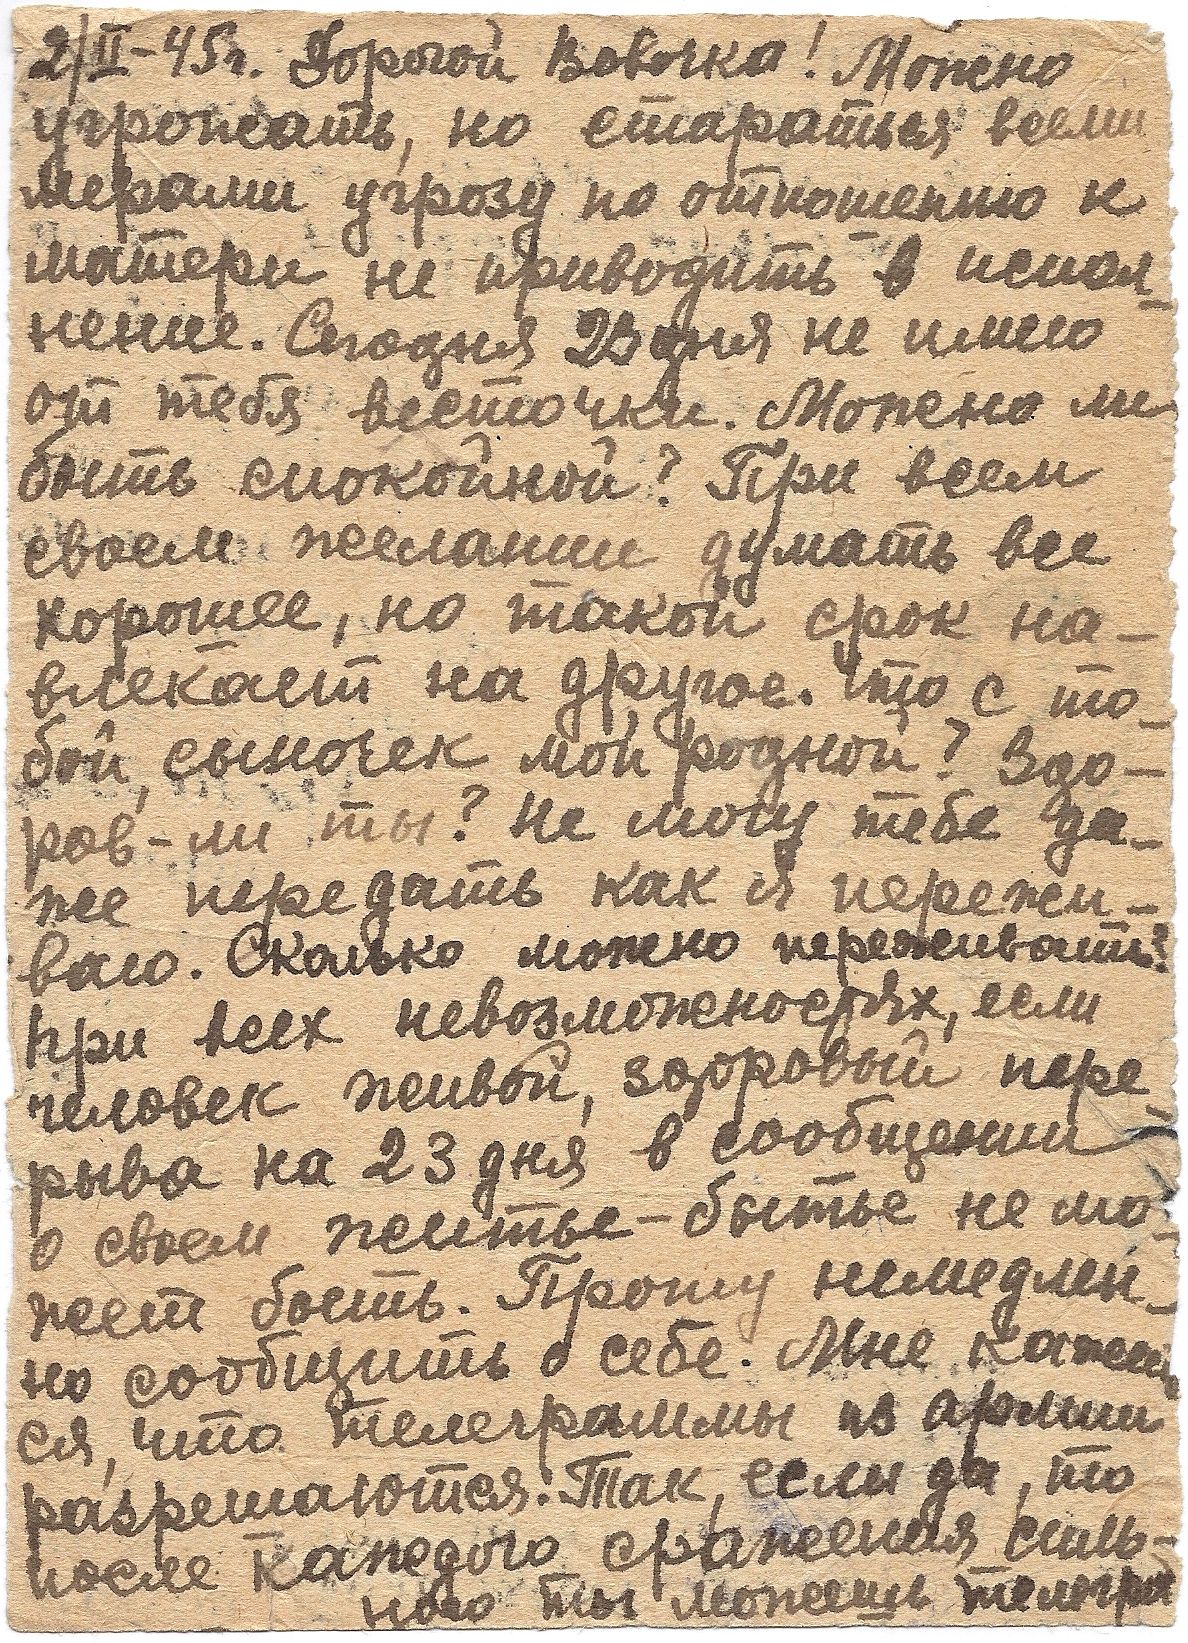 2/II-45г. Дорогой Вовочка! Можно
угрожать, но стараться всеми
мерами угрозу по отношению к
матери не приводить в испол-
нение. Сегодня 23 дня не имею
от тебя весточки. Можно ли
быть спокойной? При всем
своем желании думать все
хорошее, но такой срок на-
влекает на другое. Что с то-
бой, сыночек мой родной? Здо-
ров-ли ты? Не могу тебе да-
же передать как я пережи-
ваю. Сколько можно переживать?
При всех невозможностях, если
человек живой, здоровый пере-
рыва на 23 дня в сообщении
о своем житье-бытье не мо-
жет быть. Прошу немедлен-
но сообщить о себе. Мне кажет
ся, что телеграммы из армии
разрешаются. Так, если да, то
после каждого сражения силь-
ного ты можешь телегра